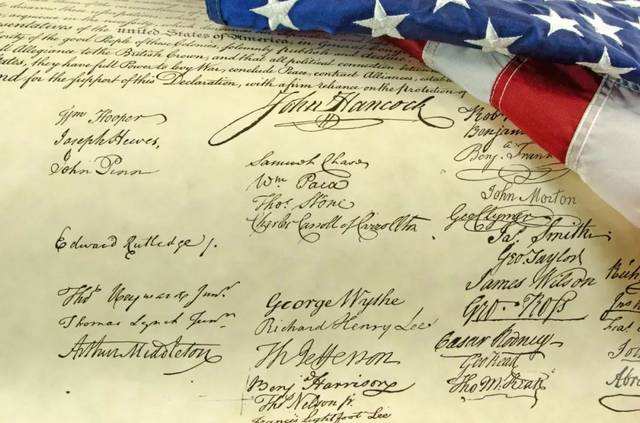 united States of
of the good People of these Colonies, solemnly
all Allegiance to the British Crown, and that all political connection
they have full Power to levy War, conclude Peace, contract Alliances,
for the support of this Declaration, with a firm reliance on the protection of
John Hancock
Wm Hooper
Joseph Hewes,
John Penn
Edward Rutledge /.
Thos Heyward Junr.
Thomas Lynch Junr.
Arthur Middleton
Samuel Chase
Wm Paca
Thos Stone
Charles Carroll of Carrollton
George Wythe
Richard Henry Lee
Th Jefferson
Benj Harrison
Thos Nelson jr.
Francis Lightfoot Lee
Rob
Benjamin
Benj. Frank
John Morton
Geo Clymer
Jas. Smith
Geo Taylor
James Wilson
Geo. Ross
Caesar Rodney
Geo Read
Tho M:Kean
Abra